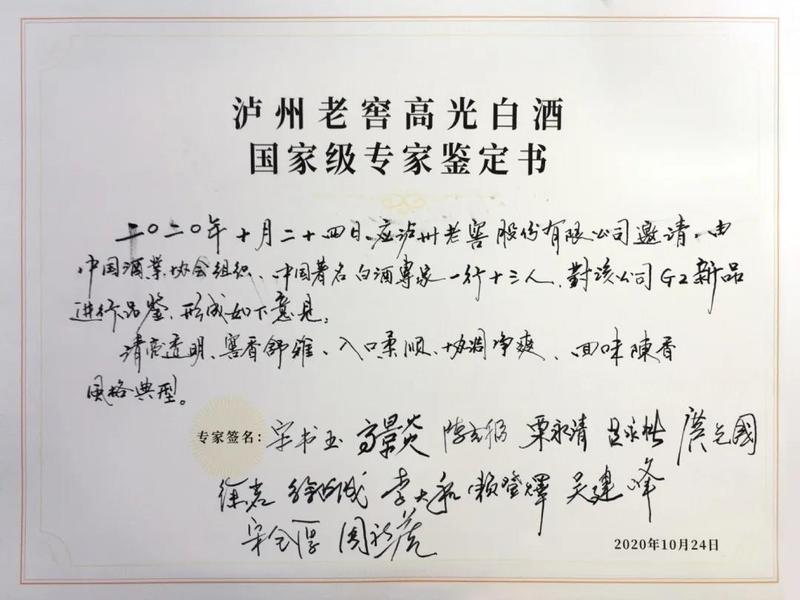 泸州老窖高光白酒
国家级专家鉴定书
二〇二〇年十月二十四日、应泸州老窖股份有限公司邀请、由
中国酒业协会组织、中国著名白酒專家一行十三人、對该公司G2新品
进行品鉴、形成如下意见:
清亮透明、窖香舒雅、入口柔顺、协调净爽、回味陳香
風格典型。
专家签名: 宋书玉 高景炎 栗永清 吕永杜 廖光國
徐岩 李大和 赖登燡 吴建峰
2020年10月24日